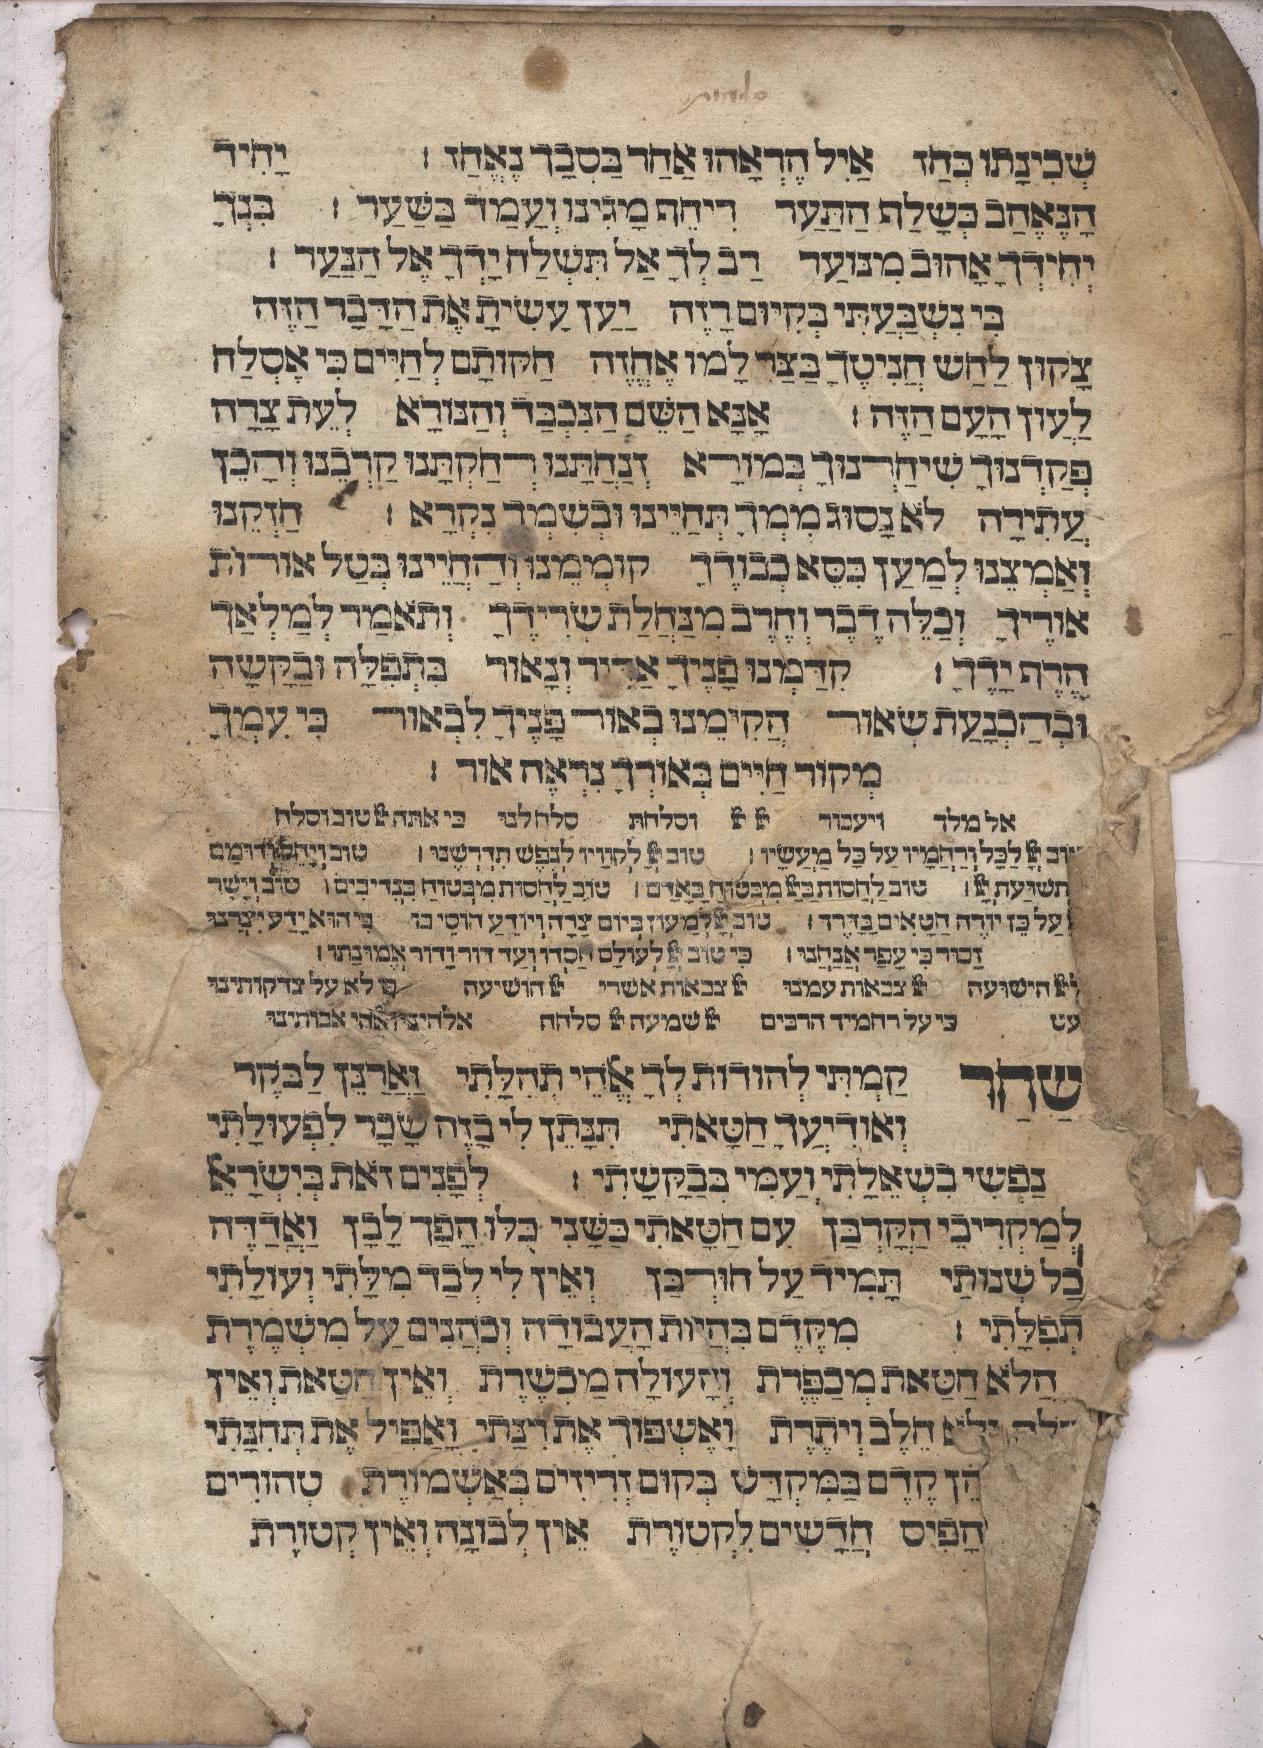 סליחות
שְׁכִינָתוֹ כְּחַז אַיִל הֶרְאָהוּ אַחַר בַּסְבַךְ נֶאֱחַז : יָחִיד
הַנֶּאֱהַב כְּשָׁלַף הַתַּעַר רִיחֵף מָגִינוּ וְעָמַד בַּשַּׁעַר : בִּנְךָ
יְחִידְךָ אָהוּב מִנּוֹעַר רַב לְךָ אַל תִּשְׁלַח יָדְךָ אֶל הַנַּעַר :
כִּי נִשְׁבַּעְתִּי בְּקִיּוּם רָזֶה יַעַן עָשִׂיתָ אֶת הַדָּבָר הַזֶּה
צָקוּן לַחַשׁ חֲנִיטֶךָ בַּצַר לָמוֹ אֶחֱזֶה חַקּוֹתָם לְחַיִּים כִּי אֶסְלַח
לַעֲוֹן הָעָם הַזֶּה : אָנָּא הַשֵּׁם הַנִּכְבַּד וְהַנּוֹרָא לְעֵת צָרָה
פְּקַדְנוּךָ שִׁיחַרְנוּךָ בְּמוֹרָא זְנַחְתָּנוּ רִחַקְתָּנוּ קַרְבֵנוּ וְהָכֵן
עֲתִירָה לֹא נָסוֹג מִמְּךָ תְּחַיֵּינוּ וּבְשִׁמְךָ נִקְרָא : חַזְּקֵנוּ
וְאַמְּצֵנוּ לְמַעַן כִּסֵּא כְבוֹדֶךָ קוֹמְמֵנוּ וְהַחֲיֵינוּ בְּטַל אוֹרוֹת
אוֹרֶיךָ וְכַלֵּה דֶבֶר וְחֶרֶב מִנַּחֲלַת שְׂרִידֶךָ וְתֹאמַר לְמַלְאָךְ
הֶרֶף יָדֶךָ : קִדַּמְנוּ פָנֶיךָ אַדִּיר וְנָאוֹר בִּתְפִלָּה וּבַקָּשָׁה
וּבְהַכְנָעַת שְׂאוֹר הֲקִימֵנוּ בְּאוֹר פָּנֶיךָ לְבָאוֹר כִּי עִמְּךָ
מְקוֹר חַיִּים בְּאוֹרְךָ נִרְאֶה אוֹר :
אל מלך ויעבור וסלחת סלח לנו כי אתה טוב וסלח
לַכֹּל וְרַחֲמָיו עַל כָּל מַעֲשָׂיו : טוֹב לְקֹוָיו לְנֶפֶשׁ תִדְרְשֶׁנּוּ : טוֹב וְיָחִיל וְדוּמָם
טוֹב לַחֲסוֹת מִבְּטוֹחַ בָּאָדָם : טוֹב לַחֲסוֹת מִבְּטוֹחַ בִּנְדִיבִים : טוֹב וְיָשָׁר
עַל כֵּן יוֹרֶה חַטָּאִים בַּדָּרֶךְ : טוֹב לְמָעוֹז בְּיוֹם צָרָה וְיוֹדֵעַ חוֹסֵי בוֹ כִּי הוּא יָדַע יִצְרֵנוּ
זָכוּר כִּי עָפָר אֲנָחְנוּ : כִּי טוֹב לְעוֹלָם חַסְדוֹ וְעַד דּוֹר וָדוֹר אֱמוּנָתוֹ :
הישועה צבאות עמנו צבאות אשרי הושיעה לא על צדקותינו
כי על רחמיך הרבים שמעה סלחה אבותינו
שַׁחַר קַמְתִּי לְהוֹדוֹת לְךָ אֱלֹהֵי תְהִלָּתִי וַאֲרַנֵּן לַבֹּקֶר
וְאוֹדִיעֲךָ חַטָּאתִי תִּנָּתֵן לִי בָּזֶה שָׂכָר לִפְעוּלָתִי
נַפְשִׁי בִשְׁאֵלָתִי וְעַמִּי בְּבַקָּשָׁתִי : לְפָנִים זֹאת בְּיִשְׂרָאֵ
לְמַקְרִיבֵי הַקָּרְבָּן עִם חַטָּאתִי כַּשָּׁנִי כֻּלּוֹ הָפַךְ לָבָן וַאֲדַדֶּה
כָל שְׁנוֹתַי תָּמִיד עַל חוּרְבָּן וְאֵין לִי לְבַד מִלָּתִי וְעוֹלָתִי
תְפִלָּתִי : מִקֶּדֶם בִּהְיוֹת הָעֲבוֹדָה וְכֹהֲנִים עַל מִשְׁמֶרֶת
הֲלֹא חַטָּאת מְכַפֶּרֶת וְהָעוֹלָה מַכְשֶׁרֶת וְאֵין חַטָּאת וְאֵין
חֵלֶב וְיֹתֶרֶת וְאֶשְׁפּוֹךְ אֶת רִנָּתִי וְאַפִּיל אֶת תְּחִנָּתִי
הֵן קֶדֶם בַּמִּקְדָּשׁ בְּקוּם זְרִיזִים בְּאַשְׁמוֹרֶת טְהוֹרִים
הֵפִיס חֲדָשִׁים לִקְטוֹרֶת אֵין לְבוֹנָה וְאֵין קְטוֹרֶת